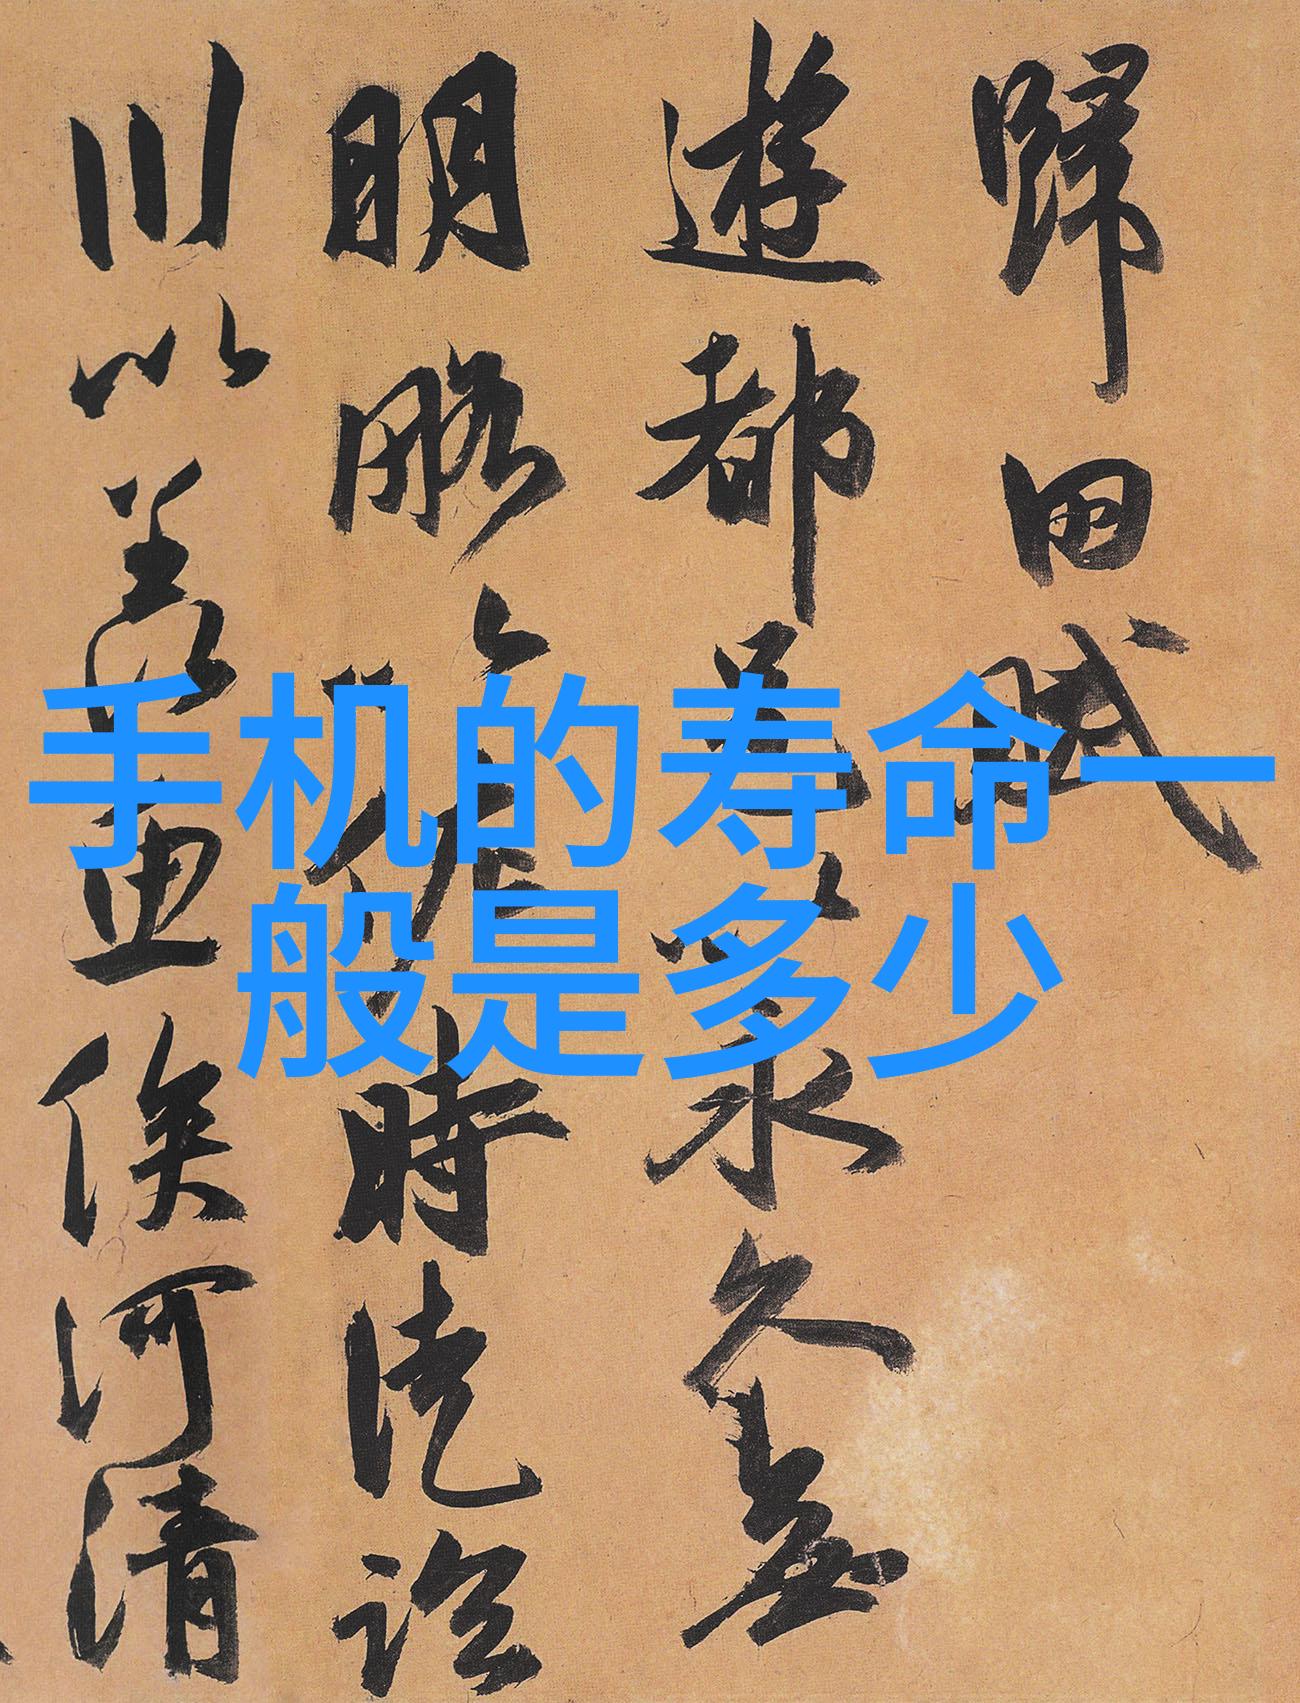 歸田賦
遊都邑以永久無
明略以佐時徒臨
川以羡魚俟河清
手机的寿命一
般是多少